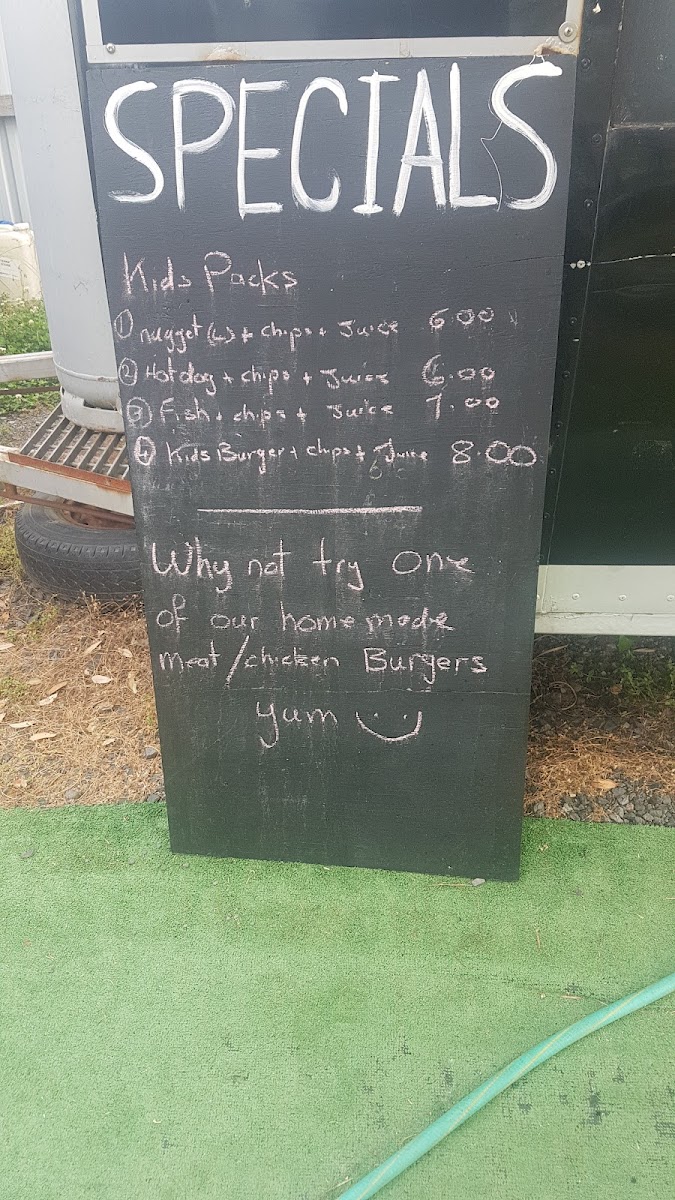 SPECIALS
Kids Packs
① nugget (4) + chips + Juice 6.00
② Hotdog + chips + Juice 6.00
③ Fish + chips + Juice 7.00
④ Kids Burger + chips + Juice 8.00
Why not try one
of our homemade
meat/chicken Burgers
yum